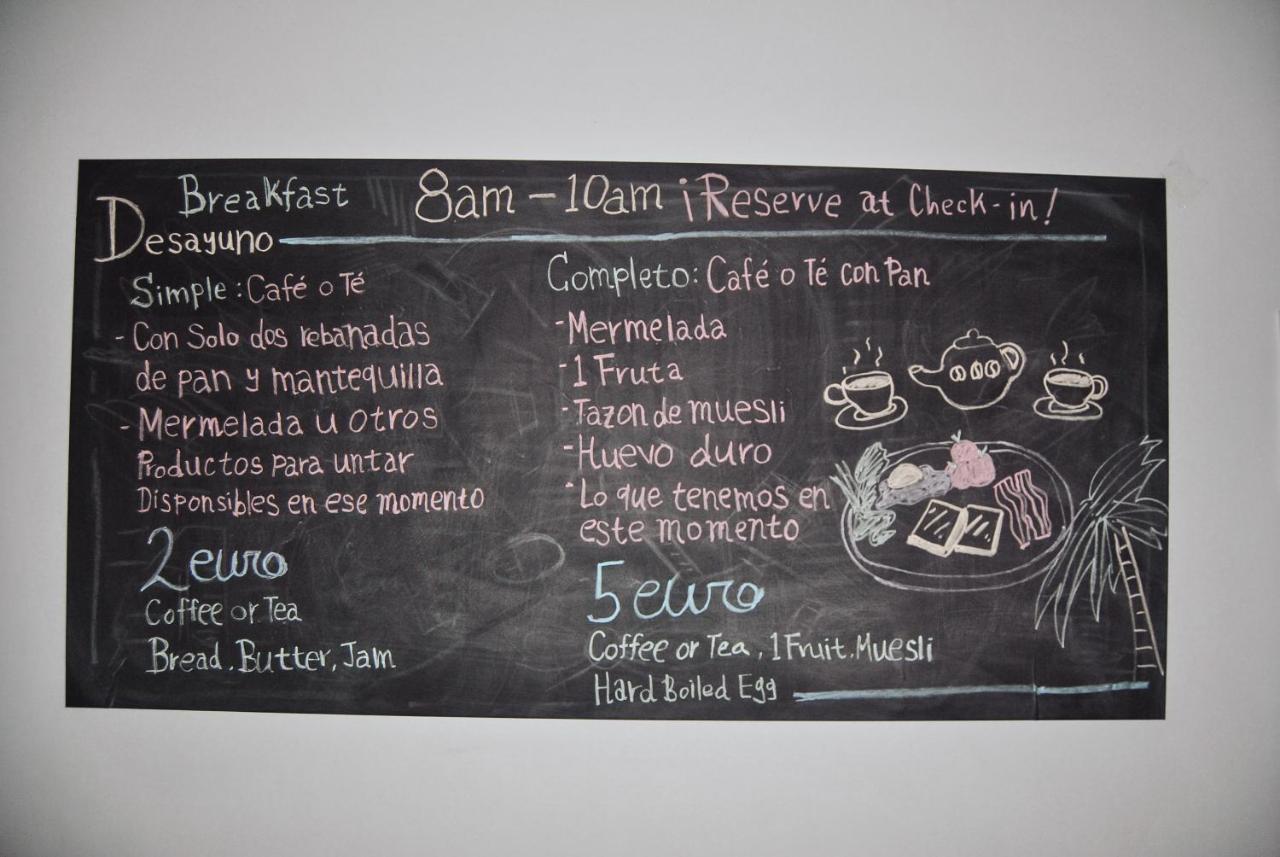 Breakfast 8am - 10am ¡Reserve at Check-in!
Desayuno
Simple: Café o Té
- Con Solo dos rebanadas
de pan y mantequilla
- Mermelada u otros
Productos para untar
Disponsibles en ese momento
2 euro
Coffee or Tea
Bread, Butter, Jam
Completo: Café o Té con Pan
- Mermelada
- 1 Fruta
- Tazon de muesli
- Huevo duro
- Lo que tenemos en
este momento
5 euro
Coffee or Tea, 1 Fruit, Muesli
Hard Boiled Egg